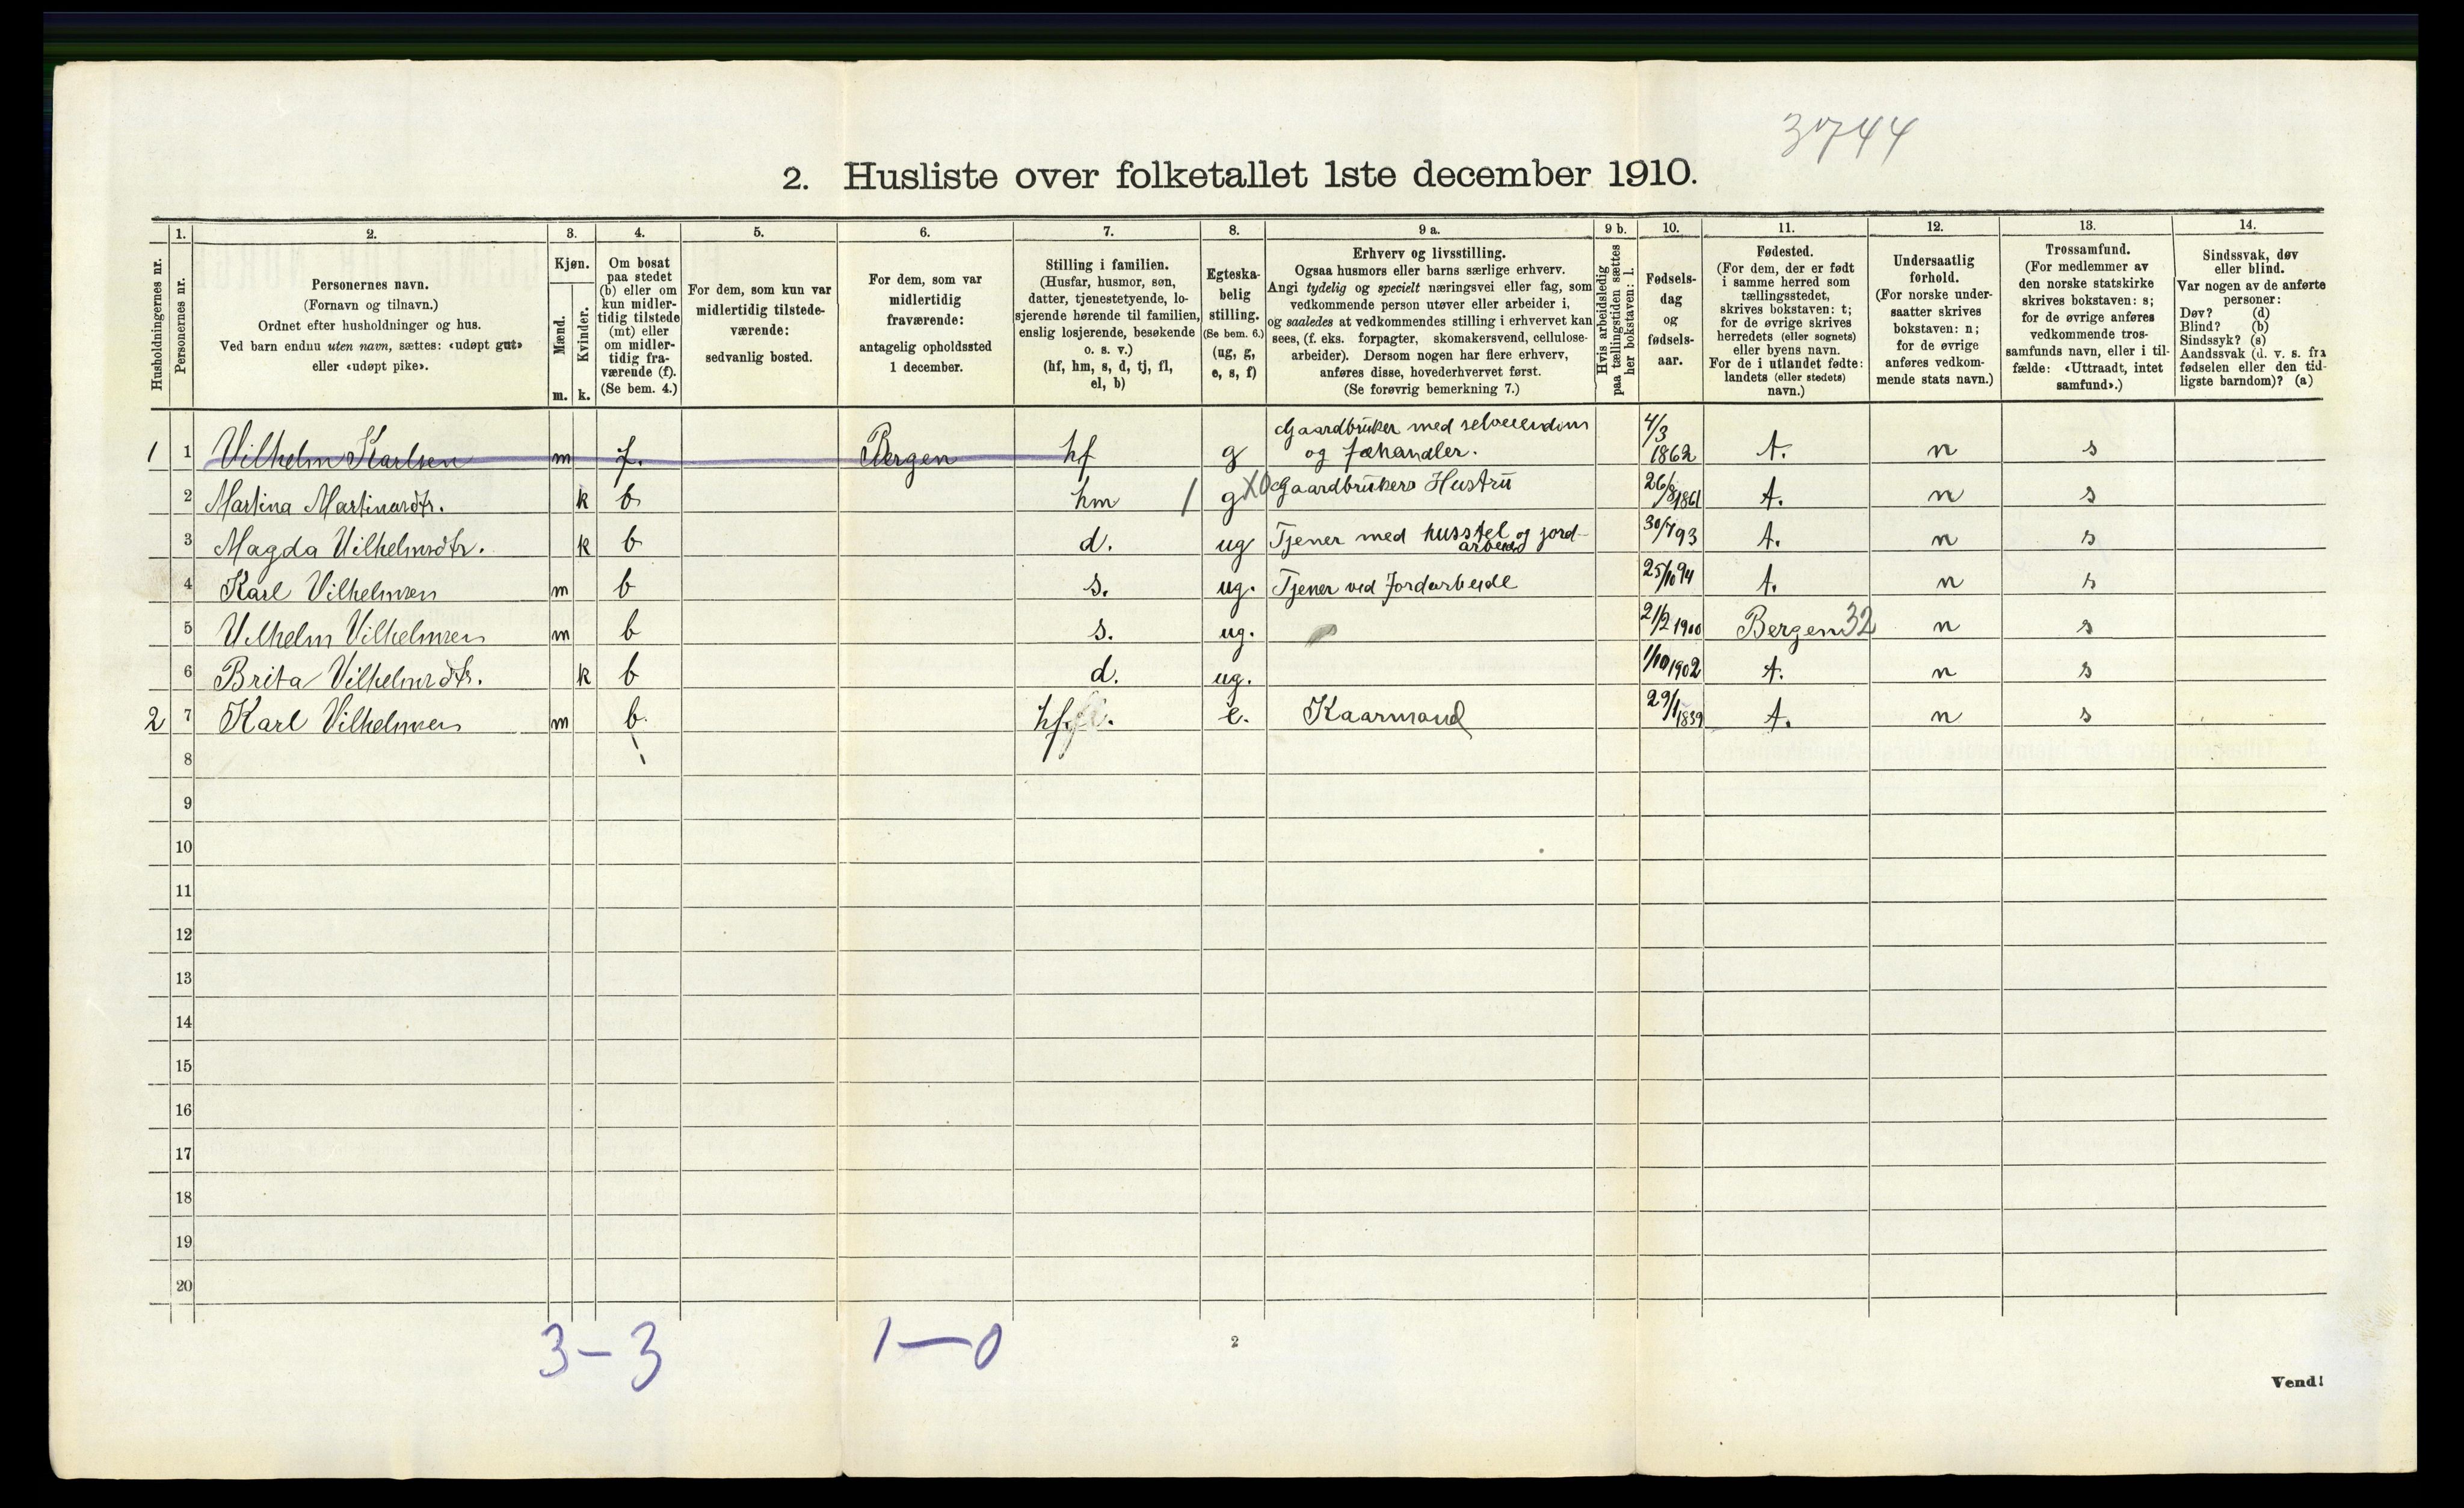 3744
2. Husliste over folketallet 1ste december 1910.
Husholdningernes nr.
1.
Personernes nr.
2.
Personernes navn.
(Fornavn og tilnavn.)
Ordnet efter husholdninger og hus.
Ved barn endnu uten navn, sættes: «udøpt gut»
eller «udøpt pike».
3.
Kjøn.
Mænd.
Kvinder.
m. k.
4.
Om bosat
paa stedet
(b) eller om
kun midler-
tidig tilstede
(mt) eller
om midler-
tidig fra-
værende (f).
(Se bem. 4.)
5.
For dem, som kun var
midlertidig tilstede-
værende:
sedvanlig bosted.
6.
For dem, som var
midlertidig
fraværende:
antagelig opholdssted
1 december.
7.
Stilling i familien.
(Husfar, husmor, søn,
datter, tjenestetyende, lo-
sjerende hørende til familien,
enslig losjerende, besøkende
o. s. v.)
(hf, hm, s, d, tj, fl,
el, b)
8.
Egteska-
belig
stilling.
(Se bem. 6.)
(ug, g,
e, s, f)
9 a.
Erhverv og livsstilling.
Ogsaa husmors eller barns særlige erhverv.
Angi tydelig og specielt næringsvei eller fag, som
vedkommende person utøver eller arbeider i,
og saaledes at vedkommendes stilling i erhvervet kan
sees, (f. eks. forpagter, skomakersvend, cellulose-
arbeider). Dersom nogen har flere erhverv,
anføres disse, hovederhvervet først.
(Se forøvrig bemerkning 7.)
9 b.
Hvis arbeidsledig
paa tællingstiden sættes
her bokstaven: l.
10.
Fødsels-
dag
og
fødsels-
aar.
11.
Fødested.
(For dem, der er født
i samme herred som
tællingsstedet,
skrives bokstaven: t;
for de øvrige skrives
herredets (eller sognets)
eller byens navn.
For de i utlandet fødte:
landets (eller stedets)
navn.)
12.
Undersaatlig
forhold.
(For norske under-
saatter skrives
bokstaven: n;
for de øvrige
anføres vedkom-
mende stats navn.)
13.
Trossamfund.
(For medlemmer av
den norske statskirke
skrives bokstaven: s;
for de øvrige anføres
vedkommende tros-
samfunds navn, eller i til-
fælde: «Uttraadt, intet
samfund».)
14.
Sindssvak, døv
eller blind.
Var nogen av de anførte
personer:
Døv? (d)
Blind? (b)
Sindssyk? (s)
Aandssvak (d. v. s. fra
fødselen eller den tid-
ligste barndom)? (a)
1 1 Vilhelm Karlsen m f. Bergen hf g Gaardbruker med selveiendom og fæhandler. 4/3 1862 t. n s
2 Martina Martinusdtr. k b hm 1 g X0 Gaardbrukers Hustru 26/8 1861 t. n s
3 Magda Vilhelmsdtr. k b d. ug Tjener med husstel og jord- arbeide 30/7 93 t. n s
4 Karl Vilhelmsen m b s. ug. Tjener ved Jordarbeide 25/10 94 t. n s
5 Vilhelm Vilhelmsen m b s. ug. 21/2 1900 Bergen 32 n s
6 Brita Vilhelmsdtr. k b d. ug. 1/10 1902 t. n s
2 7 Karl Vilhelmsen m b. hf. e. Kaarmand 29/1 1839 t. n s
8
9
10
11
12
13
14
15
16
17
18
19
20
3-3 1-0
2
Vend!